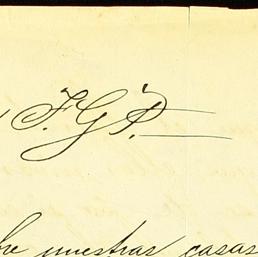 F. G. P.
nuestras casas